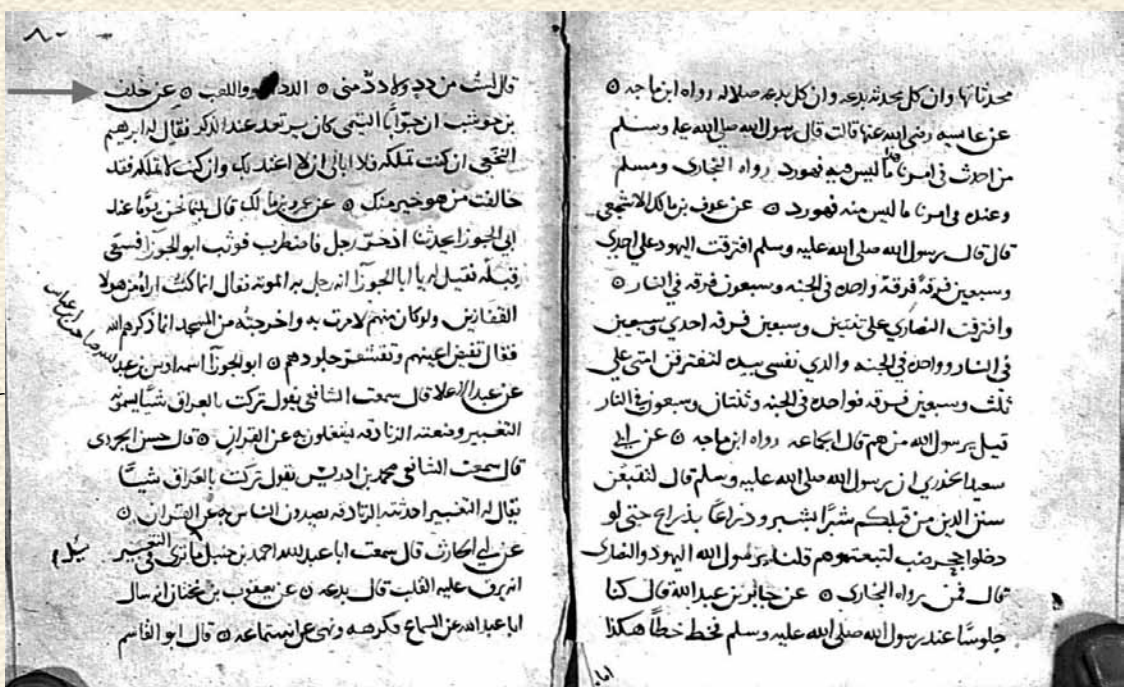 محدثاتها وان كل محدثه بدعه وان كل بدعه ضلاله رواه ابن ماجه ۞
عن عايشه رضي الله عنها قالت قال رسول الله صلى الله عليه وسلم
من احدث في امرنا هذا ما ليس فيه فهو رد رواه البخاري ومسلم
وعنده في امرنا ما ليس منه فهو رد ۞ عن عوف بن مالك الاشجعي
قال قال رسول الله صلى الله عليه وسلم افترقت اليهود على احدى
وسبعين فرقة فرقة واحده في الجنه وسبعون فرقه في النار ۞
وافترقت النصارى على ثنتين وسبعين فرقه احدي وسبعين
في النار وواحده في الجنه والذي نفسي بيده لتفترقن امتي على
ثلث وسبعين فرقه فواحده في الجنه وثنتان وسبعون في النار
قيل يرسول الله من هم قال الجماعه رواه ابن ماجه ۞ عن ابي
سعيد الخدري ان رسول الله صلى الله عليه وسلم قال لتتبعن
سنن الذين من قبلكم شبرا بشبر وذراعا بذراع حتى لو
دخلوا جحر ضب لتبعتموهم قلنا يرسول الله اليهود والنصارى
قال فمن رواه البخاري ۞ عن جابر بن عبد الله قال كنا
جلوسا عند رسول الله صلى الله عليه وسلم فخط خطا هكذا
قال لست من دد ولا دد مني ۞ الدد اللهو واللعب ۞ عن خلف
بن حوشب ان جوابا التيمي كان يرتعد عند الذكر فقال له ابرهيم
النخعي ان كنت تملكه فلا ابالي ان لا اعتد بك وان كنت لا تملكه فقد
خالفت من هو خير منك ۞ عن عمرو بن مالك قال بينما نحن يوما عند
ابي الجوزا يحدثنا اذ خر رجل فاضطرب فوثب ابو الجوزا فسعى
قبله فقيل له يا ابا الجوزا انه رجل به الموته فقال انما كنت اراه من هولا
القفازين ولو كان منهم لامرت به واخرجته من المسجد انما ذكرهم الله
فقال تفيض اعينهم وتقشعر جلودهم ۞ ابو الجوزا اسمه اوس بن عبد الله
صاحب ابن عباس
عن عبد الاعلا قال سمعت الشافعي يقول تركت بالعراق شيا يسمونه
التغبير وضعته الزنادقه يشغلون به عن القران ۞ قال حسن الجروي
قال سمعت الشافعي محمد بن ادريس يقول تركت بالعراق شيا
يقال له التغبير احدثته الزنادقه يصدون الناس به عن القران ۞
عن ابي الحارث قال سمعت ابا عبد الله احمد بن حنبل ما ترى في التغبير
انه يرق عليه القلب قال بدعه ۞ عن يعقوب بن بختان انه سال
ابا عبد الله عن السماع فكرهه ونهى عن استماعه ۞ قال ابو القاسم